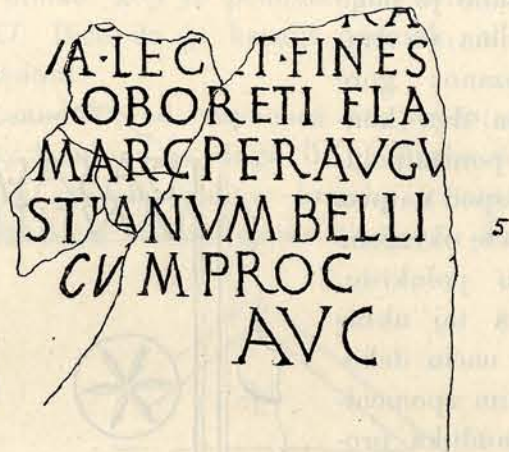 RA
IA·LEG T·FINES
ROBORETI ET A
MARC PER AVGV
STIANVM BELLI
5
CVM PROC
AVG